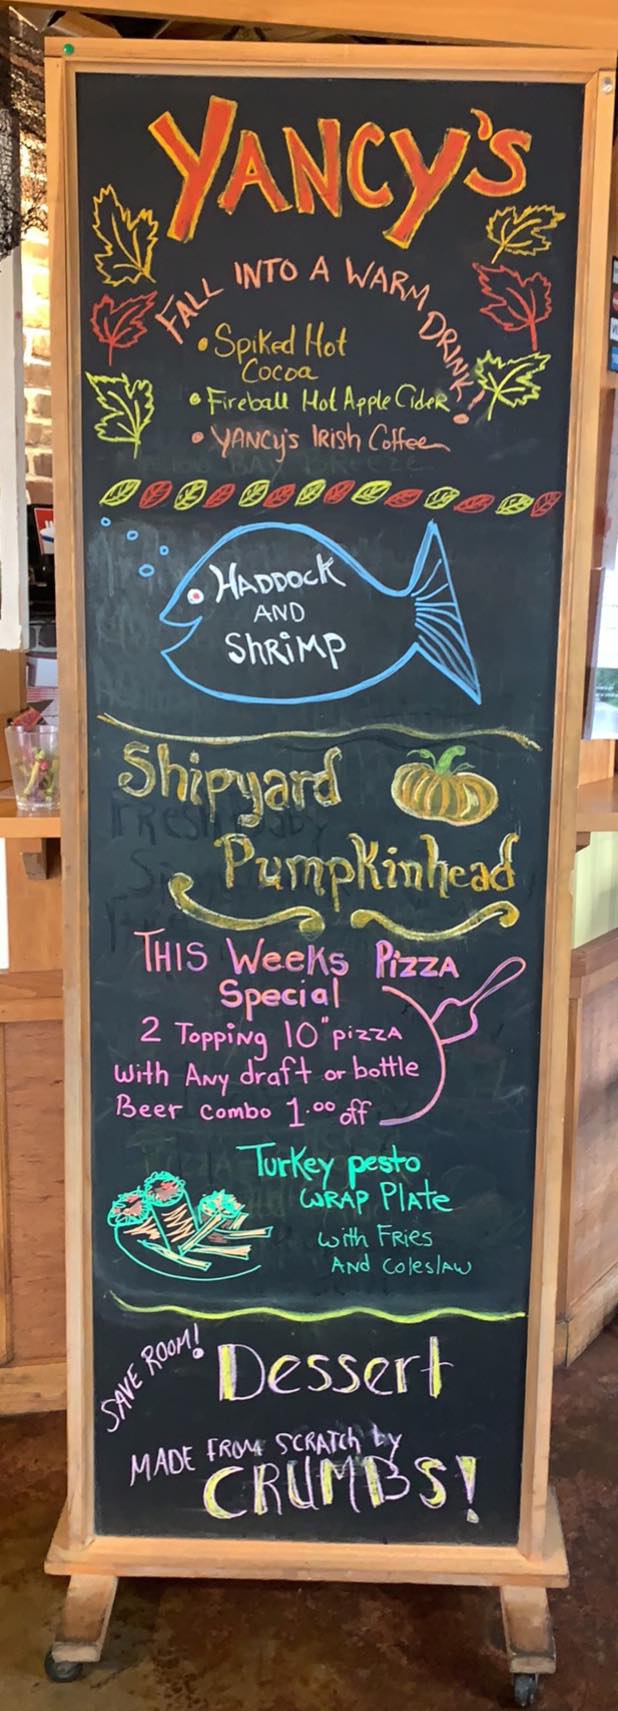 YANCY'S
FALL INTO A WARM DRINK!
• Spiked Hot
Cocoa
• Fireball Hot Apple Cider
• YANCY'S IRISH COFFEE
HADDOCK
AND
SHRIMP
Shipyard
Pumpkinhead
THIS Weeks Pizza
Special
2 Topping 10" pizza
with Any draft or bottle
Beer combo 1.00 off
Turkey pesto
WRAP Plate
with Fries
AND coleslaw
SAVE ROOM!
Dessert
MADE FROM SCRATCH by
CRUMBS!